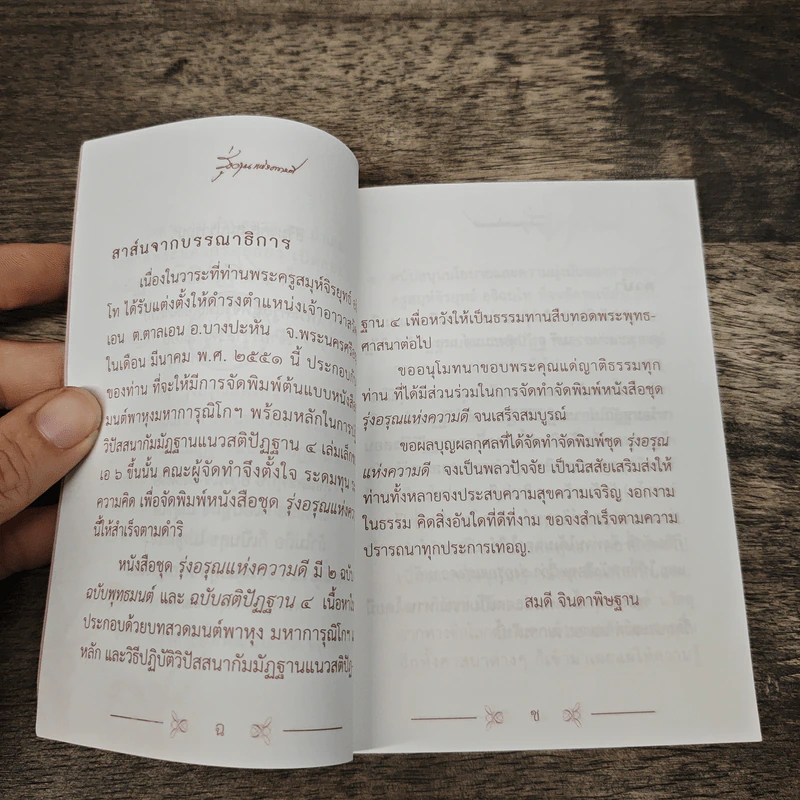 รุ่งอรุณแห่งความดี
สาส์นจากบรรณาธิการ
เนื่องในวาระที่ท่านพระครูสมุห์จิรยุทธ์
โท ได้รับแต่งตั้งให้ดำรงตำแหน่งเจ้าอาวาสวัด
เอน ต.ตาลเอน อ.บางปะหัน จ.พระนครศรี
ในเดือน มีนาคม พ.ศ. ๒๕๕๑ นี้ ประกอบกับ
ของท่าน ที่จะให้มีการจัดพิมพ์ต้นแบบหนังสือ
มนต์พาหุงมหาการุณิโกฯ พร้อมหลักในการ
วิปัสสนากัมมัฏฐานแนวสติปัฏฐาน ๔ เล่มเล็ก
เอ ๖ ขึ้นนั้น คณะผู้จัดทำจึงตั้งใจ ระดมทุน
ความคิด เพื่อจัดพิมพ์หนังสือชุด รุ่งอรุณแห่งความ
นี้ให้สำเร็จตามดำริ
หนังสือชุด รุ่งอรุณแห่งความดี มี ๒ ฉบับ
ฉบับพุทธมนต์ และ ฉบับสติปัฏฐาน ๔ เนื้อหา
ประกอบด้วยบทสวดมนต์พาหุง มหาการุณิโกฯ
หลัก และวิธีปฏิบัติวิปัสสนากัมมัฏฐานแนวสติปัฏ-
ฉ
ฐาน ๔ เพื่อหวังให้เป็นธรรมทานสืบทอดพระพุทธ-
ศาสนาต่อไป
ขออนุโมทนาขอบพระคุณแด่ญาติธรรมทุก
ท่าน ที่ได้มีส่วนร่วมในการจัดทำจัดพิมพ์หนังสือชุด
รุ่งอรุณแห่งความดี จนเสร็จสมบูรณ์
ขอผลบุญผลกุศลที่ได้จัดทำจัดพิมพ์ชุด รุ่งอรุณ
แห่งความดี จงเป็นพลวปัจจัย เป็นนิสสัยเสริมส่งให้
ท่านทั้งหลายจงประสบความสุขความเจริญ งอกงาม
ในธรรม คิดสิ่งอันใดที่ดีที่งาม ขอจงสำเร็จตามความ
ปรารถนาทุกประการเทอญ.
สมดี จินดาพิษฐาน
ช